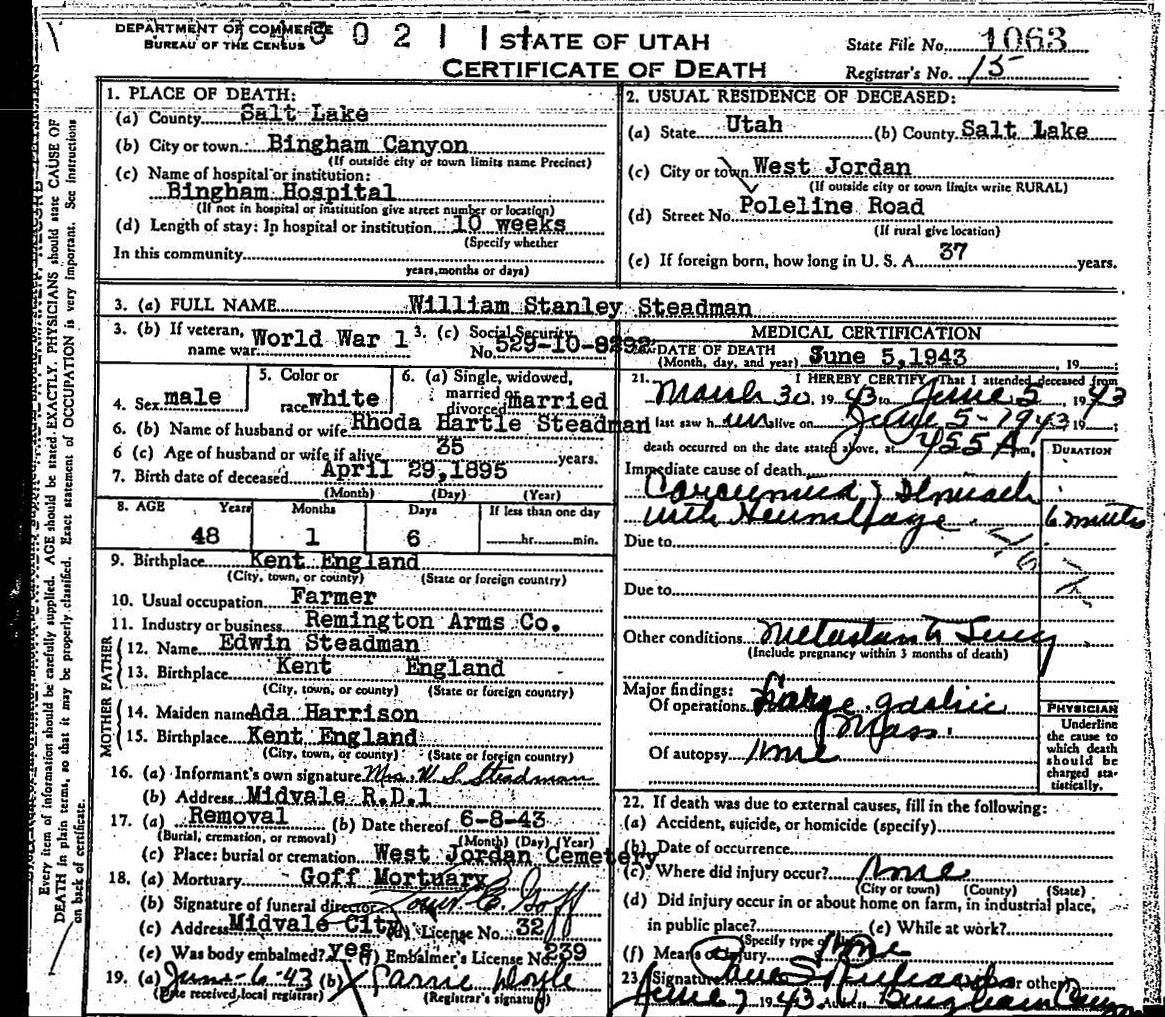 DEPARTMENT OF COMMERCE
BUREAU OF THE CENSUS
STATE OF UTAH
CERTIFICATE OF DEATH
State File No. 1063
Registrar's No. 15
Every item of information should be carefully supplied. AGE should be stated EXACTLY. PHYSICIANS should state CAUSE OF
DEATH in plain terms, so that it may be properly classified. Exact statement of OCCUPATION is very important. See instructions
on back of certificate.
1. PLACE OF DEATH:
(a) County Salt Lake
(b) City or town Bingham Canyon
(If outside city or town limits name Precinct)
(c) Name of hospital or institution:
Bingham Hospital
(If not in hospital or institution give street number or location)
(d) Length of stay: In hospital or institution 10 weeks
(Specify whether
In this community
years, months or days)
2. USUAL RESIDENCE OF DECEASED:
(a) State Utah (b) County Salt Lake
(c) City or town West Jordan
(If outside city or town limits write RURAL)
(d) Street No. Poleline Road
(If rural give location)
(e) If foreign born, how long in U. S. A. 37 years.
3. (a) FULL NAME William Stanley Steadman
3. (b) If veteran, name war World War 1
3. (c) Social Security No. 529-10-8292
4. Sex male
5. Color or race white
6. (a) Single, widowed, married or divorced married
6. (b) Name of husband or wife Rhoda Hartle Steadman
6 (c) Age of husband or wife if alive 35 years.
7. Birth date of deceased April 29, 1895
(Month) (Day) (Year)
8. AGE Years Months Days If less than one day
48 1 6 hr. min.
9. Birthplace Kent England
(City, town, or county) (State or foreign country)
10. Usual occupation Farmer
11. Industry or business Remington Arms Co.
FATHER
12. Name Edwin Steadman
13. Birthplace Kent England
(City, town, or county) (State or foreign country)
MOTHER
14. Maiden name Ada Harrison
15. Birthplace Kent England
(City, town, or county) (State or foreign country)
16. (a) Informant's own signature Mrs. W. S. Steadman
(b) Address Midvale R.D.1
17. (a) Removal (b) Date thereof 6-8-43
(Burial, cremation, or removal) (Month) (Day) (Year)
(c) Place: burial or cremation West Jordan Cemetery
18. (a) Mortuary Goff Mortuary
(b) Signature of funeral director Goff
(c) Address Midvale City License No. 32
(e) Was body embalmed? yes (f) Embalmer's License No. 239
19. (a) June-6-43 (b) Doyle
(Date received, local registrar) (Registrar's signature)
MEDICAL CERTIFICATION
20. DATE OF DEATH
(Month, day, and year) June 5, 1943, 19
21. I HEREBY CERTIFY, That I attended deceased from
March 30 1943 to June 5, 1943
I last saw him alive on June 5-1943, 19;
death occurred on the date stated above, at 455 A m.
DURATION
Immediate cause of death
Carcinoma of Stomach
with Hemorrhage 6 months
Due to
Due to
Other conditions
(Include pregnancy within 3 months of death)
Major findings:
Of operations Large gastric
Mass.
Of autopsy none
PHYSICIAN
Underline
the cause to
which death
should be
charged sta-
tistically.
22. If death was due to external causes, fill in the following:
(a) Accident, suicide, or homicide (specify)
(b) Date of occurrence
(c) Where did injury occur? none
(City or town) (County) (State)
(d) Did injury occur in or about home on farm, in industrial place,
in public place? (e) While at work?
(Specify type of
(f) Means of injury none
23 Signature or other
June 7 1943 Bingham Canyon